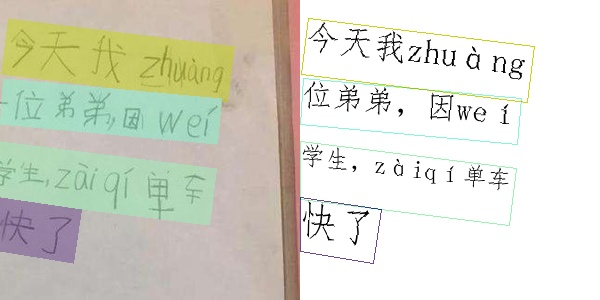 今天我 zhuàng
一位弟弟，因 weí
学生，zàiqí 单车
快了
今天我zhuàng
位弟弟，因weí
学生，zàiqí单车
快了